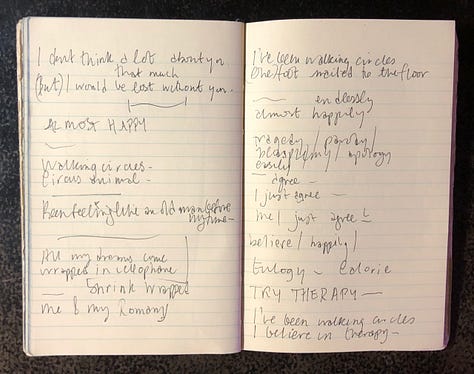 I don't think a lot about you
that much
(but) I would be lost without you.
ALMOST HAPPY
Walking circles -
Circus animal -
Been feeling like an old man before
my time -
All my dreams come
wrapped in cellophane
Shrink wrapped
me & my
I've been walking circles
one foot nailed to the floor
endlessly
almost happily
tragedy / parody /
blasphemy / apology
easily
agree -
I just agree -
me I just agree
believe / happily /
Eulogy - Calorie
TRY THERAPY -
I've been walking circles
I believe in therapy -